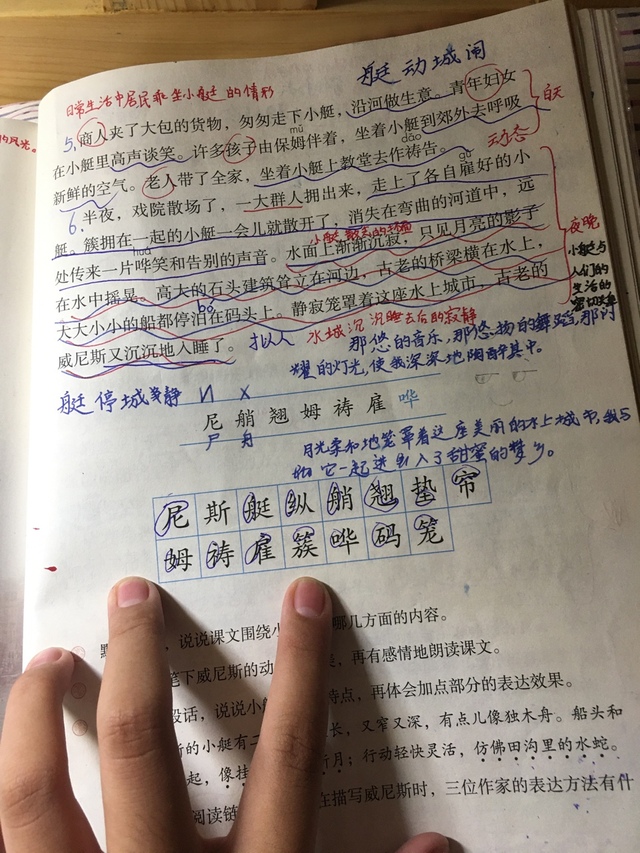 的风光。
艇动城闹
日常生活中居民乘坐小艇的情形
5,商人夹了大包的货物,匆匆走下小艇,沿河做生意。青年妇女
白天
在小艇里高声谈笑。许多孩子由保姆伴着,坐着小艇到郊外去呼吸
mǔ
动态
dǎo
新鲜的空气。老人带了全家,坐着小艇上教堂去作祷告。
gù
6.半夜,戏院散场了,一大群人拥出来,走上了各自雇好的小
夜晚
艇。簇拥在一起的小艇一会儿就散开了,消失在弯曲的河道中,远
小艇与
人们的
生活的
密切关系
huá
处传来一片哗笑和告别的声音。水面上渐渐沉寂,只见月亮的影子
在水中摇晃。高大的石头建筑耸立在河边,古老的桥梁横在水上,
bó
大大小小的船都停泊在码头上。静寂笼罩着这座水上城市,古老的
威尼斯又沉沉地入睡了。
拟人
水城沉沉睡去后的寂静
那悠的音乐,那悠扬的舞蹈,那闪
耀的灯光,使我深深地陶醉其中。
艇停城静
尼艄翘姆祷雇哗
尸 舟
月光柔和地笼罩着这座美丽的水上城市,我与
它一起进入了甜蜜的梦乡。
尼斯艇纵艄翘垫帘
姆祷雇簇哗码笼
说说课文围绕小
哪几方面的内容。
笔下威尼斯的动
再有感情地朗读课文。
段话,说说小
特点,再体会加点部分的表达效果。
的小艇有二
长,又窄又深,有点儿像独木舟。船头和
起,像挂
新月;行动轻快灵活,仿佛田沟里的水蛇。
阅读链
在描写威尼斯时,三位作家的表达方法有什